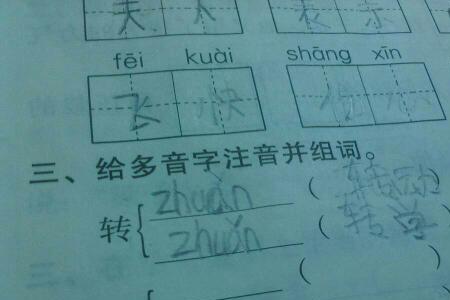 fēi kuài shāng xīn
飞快 伤心
三、给多音字注音并组词。
zhuàn ( 转动
转{
zhuǎn ( 转学
(